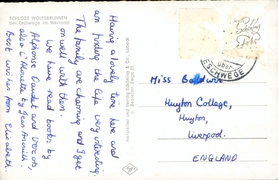 SCHLOSS WOLFSBRUNNEN
bei Eschwege im Werratal
Having a lovely time here and
am finding the life very interesting.
The family are charming and I get
on well with them.
we have read books by
Alphonse Daudet and
also L'Alouette by Jean Anouilh.
Best wishes from Elizabeth
über
ESCHWEGE
Miss Baldwin
Huyton College,
Huyton,
Liverpool.
ENGLAND